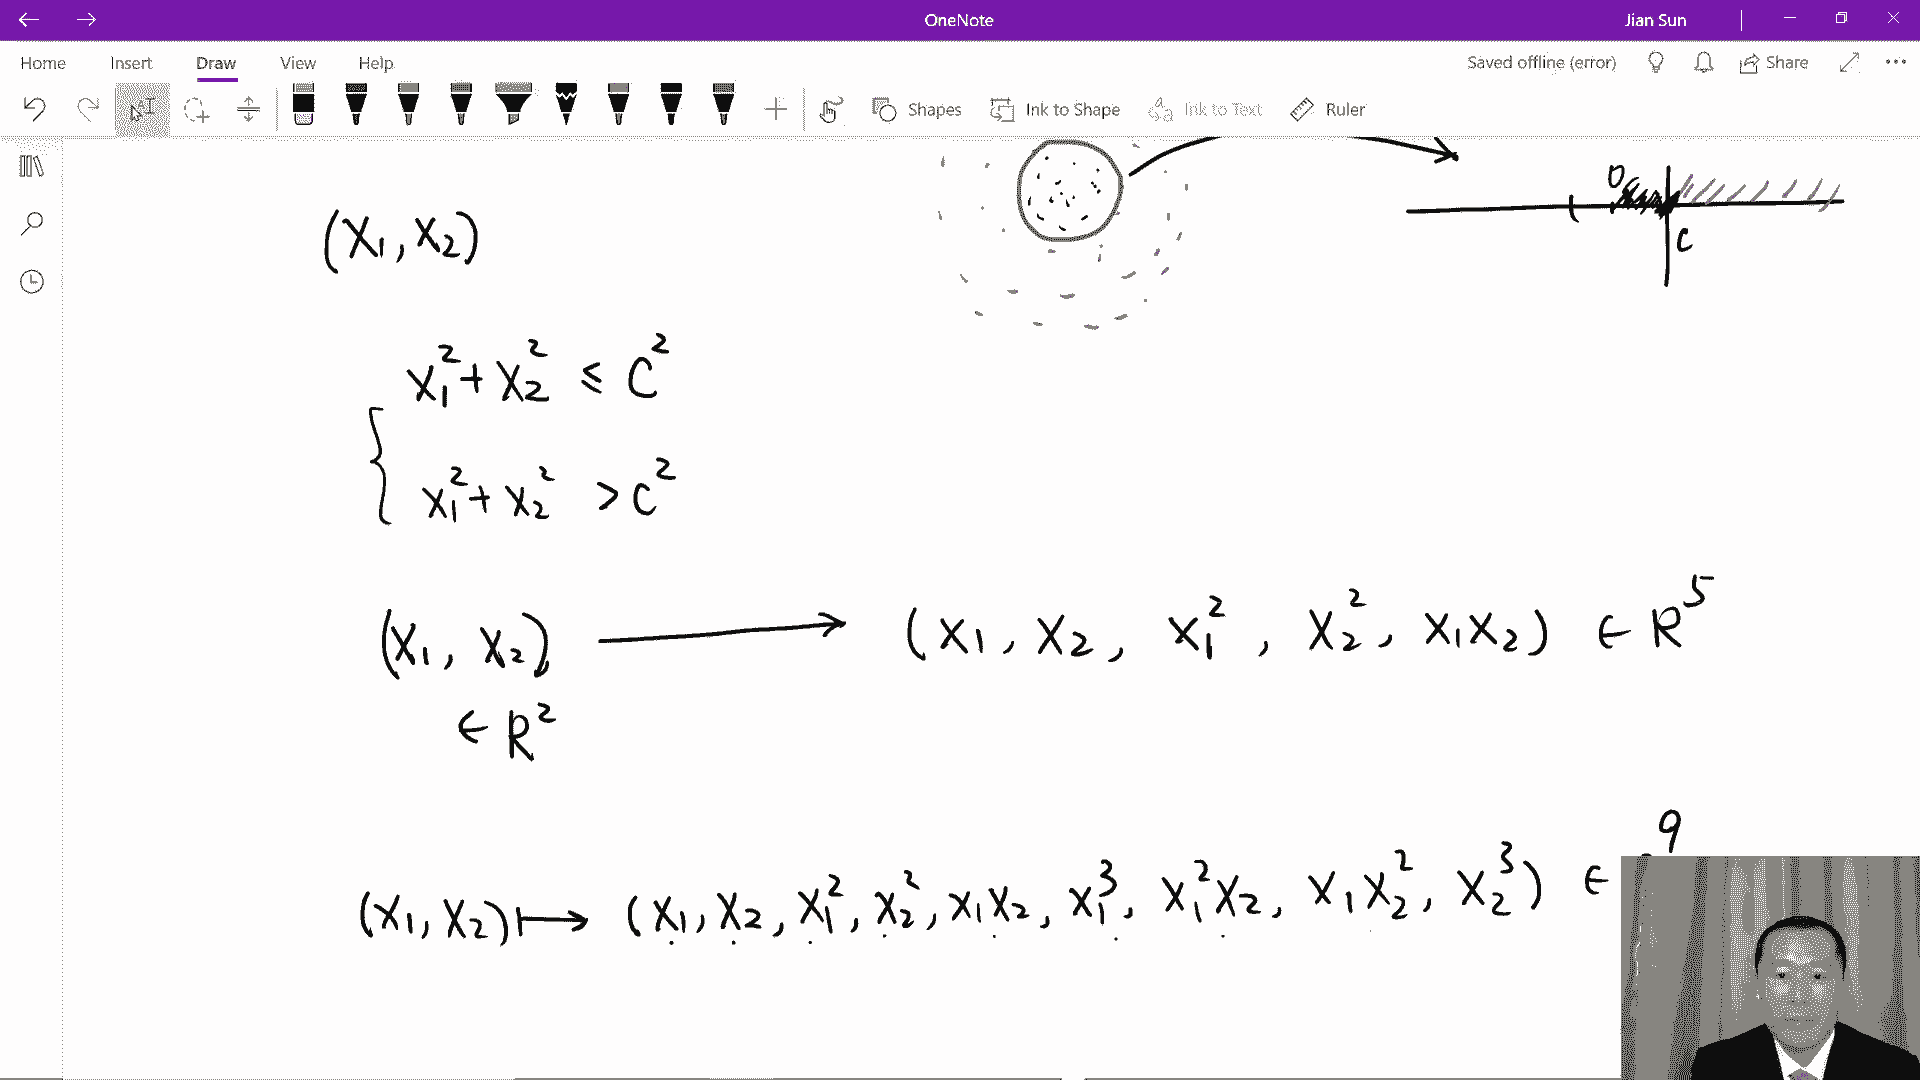 OneNote
Jian Sun
Home Insert Draw View Help
Saved offline (error) Share
Shapes Ink to Shape Ink to Text Ruler
0
C
(X₁, X₂)
X₁² + X₂² ≤ C²
X₁² + X₂² > C²
(X₁, X₂) → (X₁, X₂, X₁², X₂², X₁X₂) ∈ R⁵
∈ R²
(X₁, X₂) ↦ (X₁, X₂, X₁², X₂², X₁X₂, X₁³, X₁²X₂, X₁X₂², X₂³) ∈ ⁹